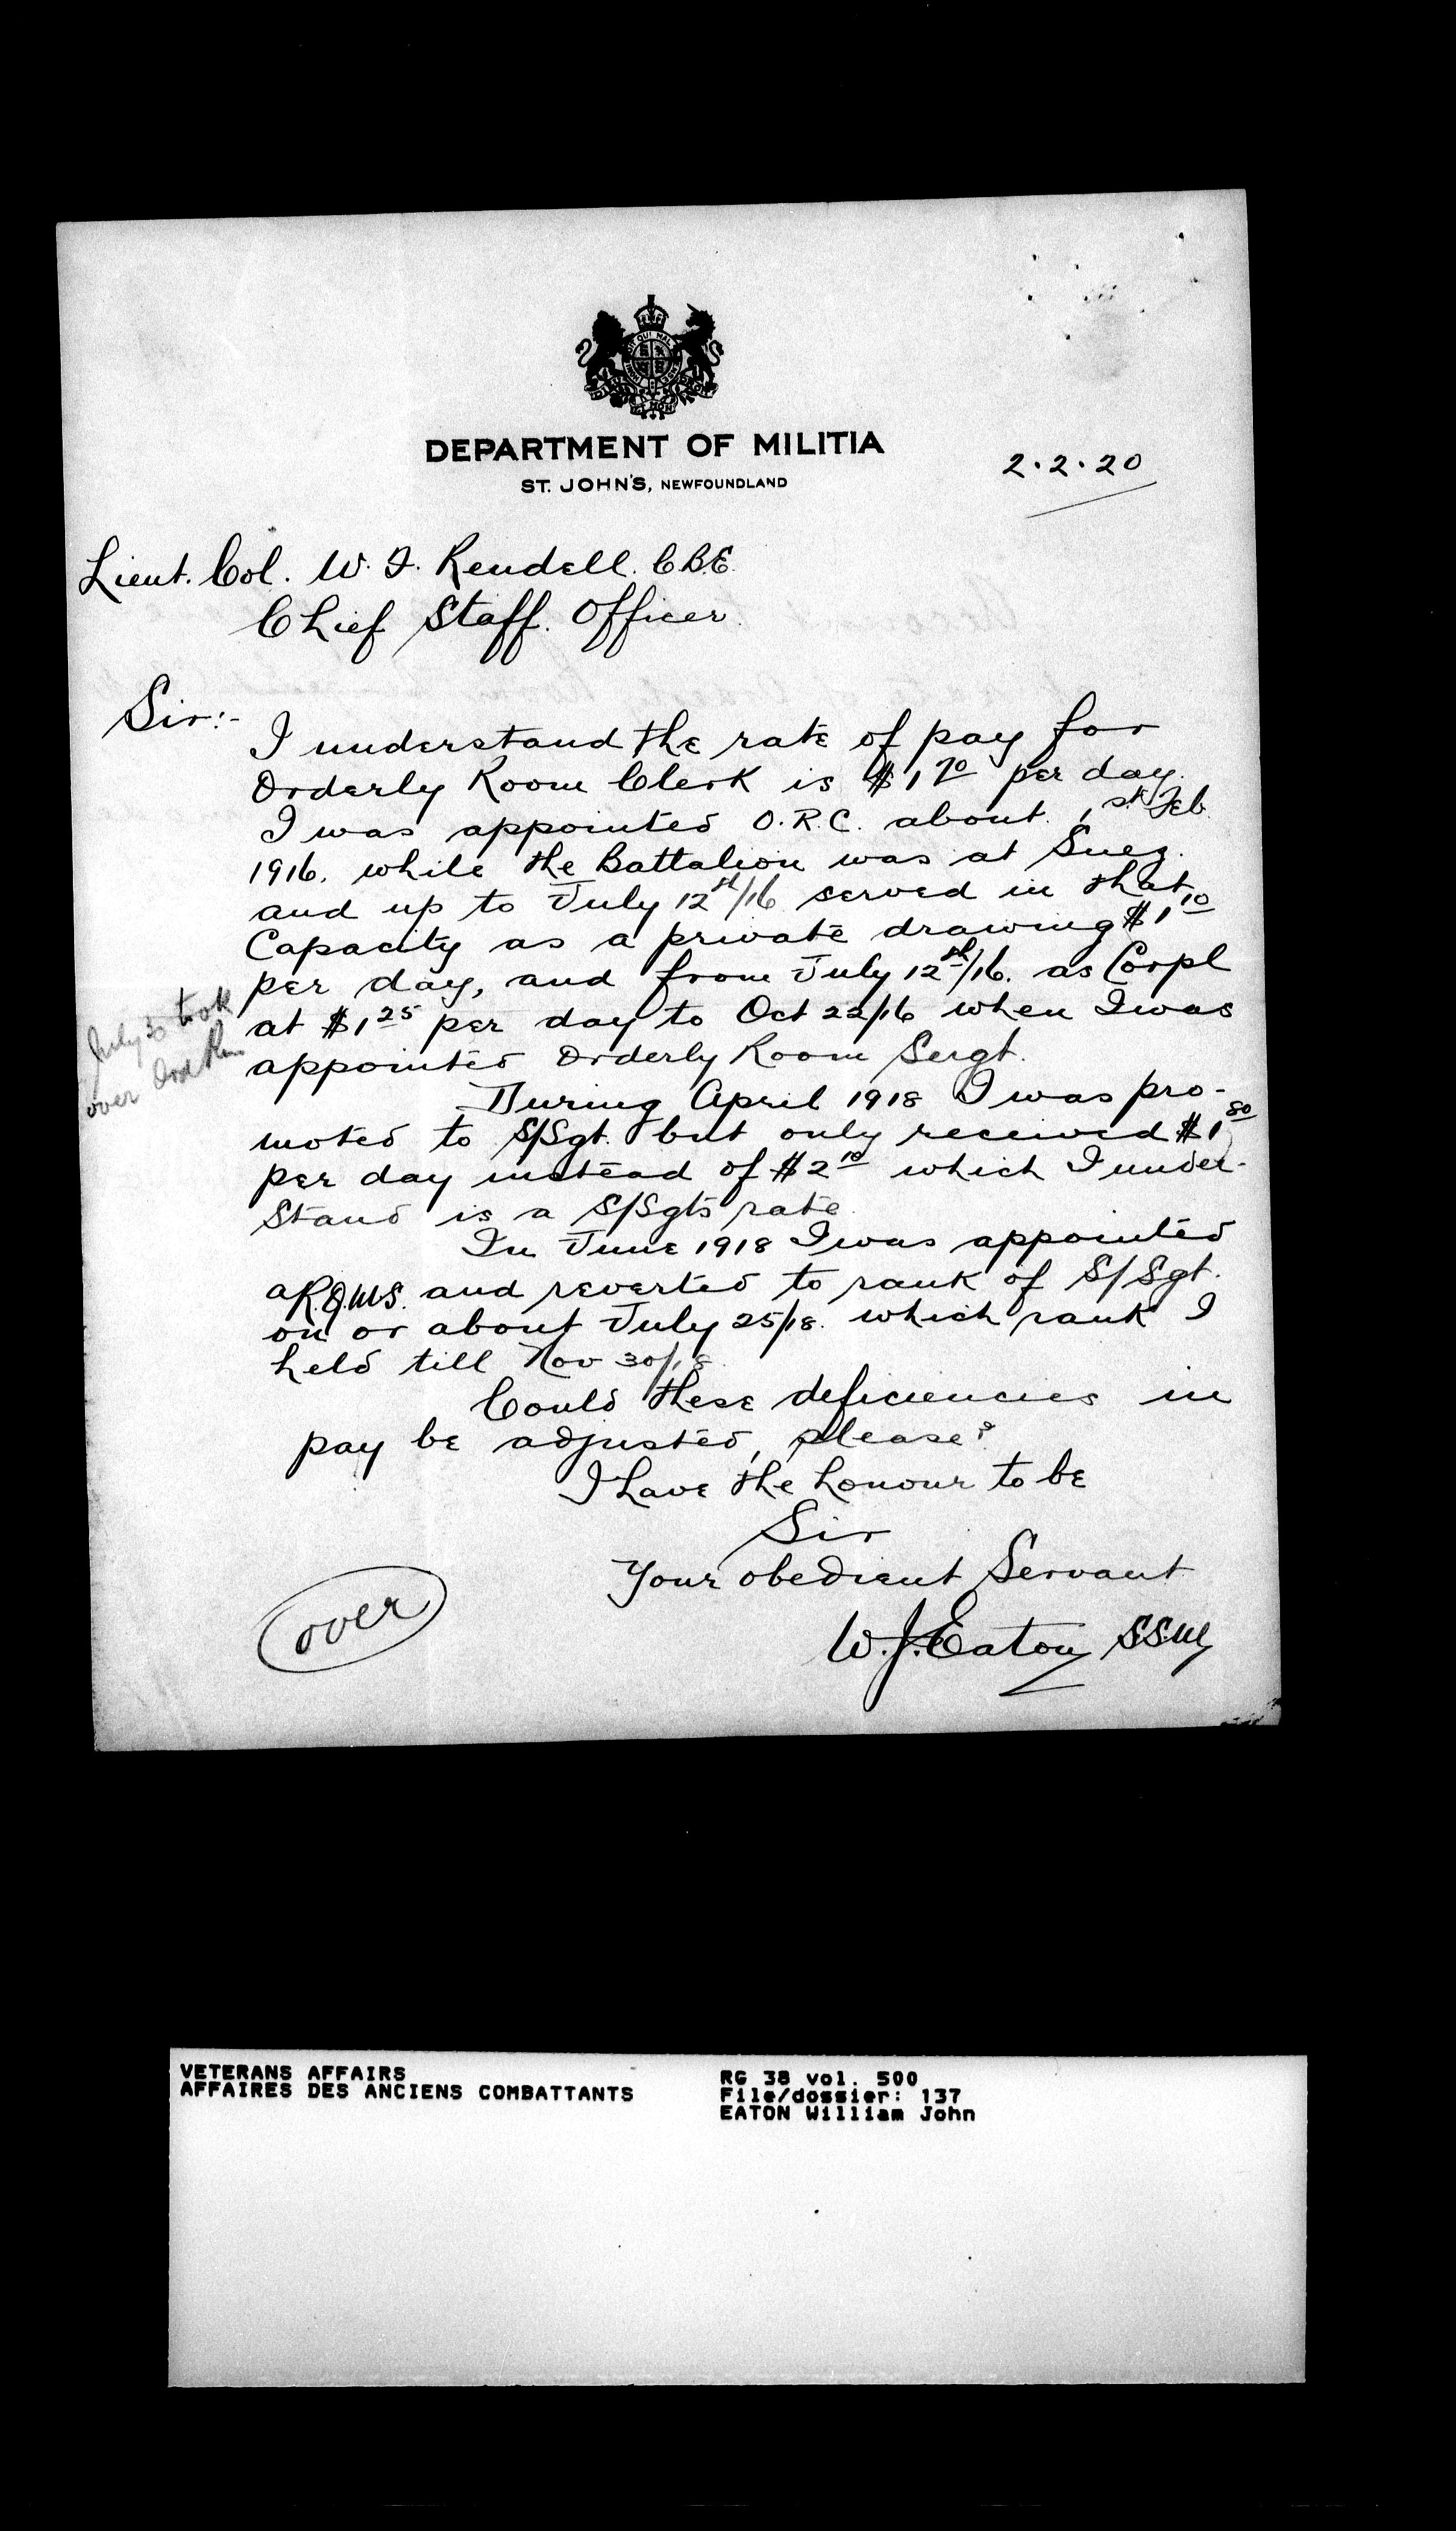 DEPARTMENT OF MILITIA
ST. JOHN'S, NEWFOUNDLAND
2.2.20
Lieut. Col. W. F. Rendell. C.B.E.
Chief Staff. Officer.
Sir:-
I understand the rate of pay for
Orderly Room Clerk is $1 70 per day.
I was appointed O.R.C. about 1st Feb
1916. while the Battalion was at Suez.
and up to July 12st/16 served in that
Capacity as a private drawing $1 10
per day, and from July 12st/16. as Corpl
at $1 25 per day to Oct 22/16 when I was
appointed Orderly Room Sergt.
July 30 took
over Ord Rm
During April 1918 I was pro-
moted to S/Sgt. but only received $1 80
per day instead of $2 10 which I under-
stand is a S/Sgts rate
In June 1918 I was appointed
a R.Q.M.S. and reverted to rank of S/Sgt.
on or about July 25/18. which rank I
held till Nov 30/18.
Could these deficiencies in
pay be adjusted, please?
I have the honour to be
Sir
Your obedient Servant
W. J. Eaton S.S.M
over
VETERANS AFFAIRS
AFFAIRES DES ANCIENS COMBATTANTS
RG 38 vol. 500
File/dossier: 137
EATON William John